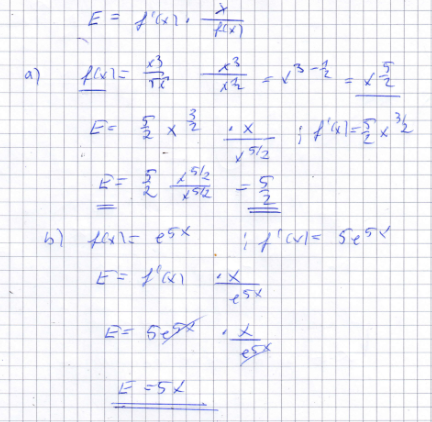 E = f'(x) · x/f(x)
a) f(x) = x³/√x   x³/x^½ = x^(3-½) = x^(5/2)
E = 5/2 x^(3/2) · x/x^(5/2) ; f'(x) = 5/2 x^(3/2)
E = 5/2 x^(5/2)/x^(5/2) = 5/2
b) f(x) = e^5x ; f'(x) = 5e^5x
E = f'(x) · x/e^5x
E = 5e^5x · x/e^5x
E = 5x